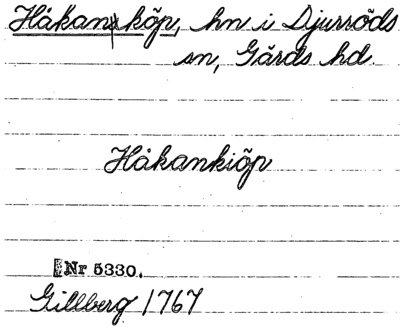 Håkansköp, hn i Djurröds
sn, Gärds hd.
Håkankiöp
Nr 5330.
Gillberg 1767